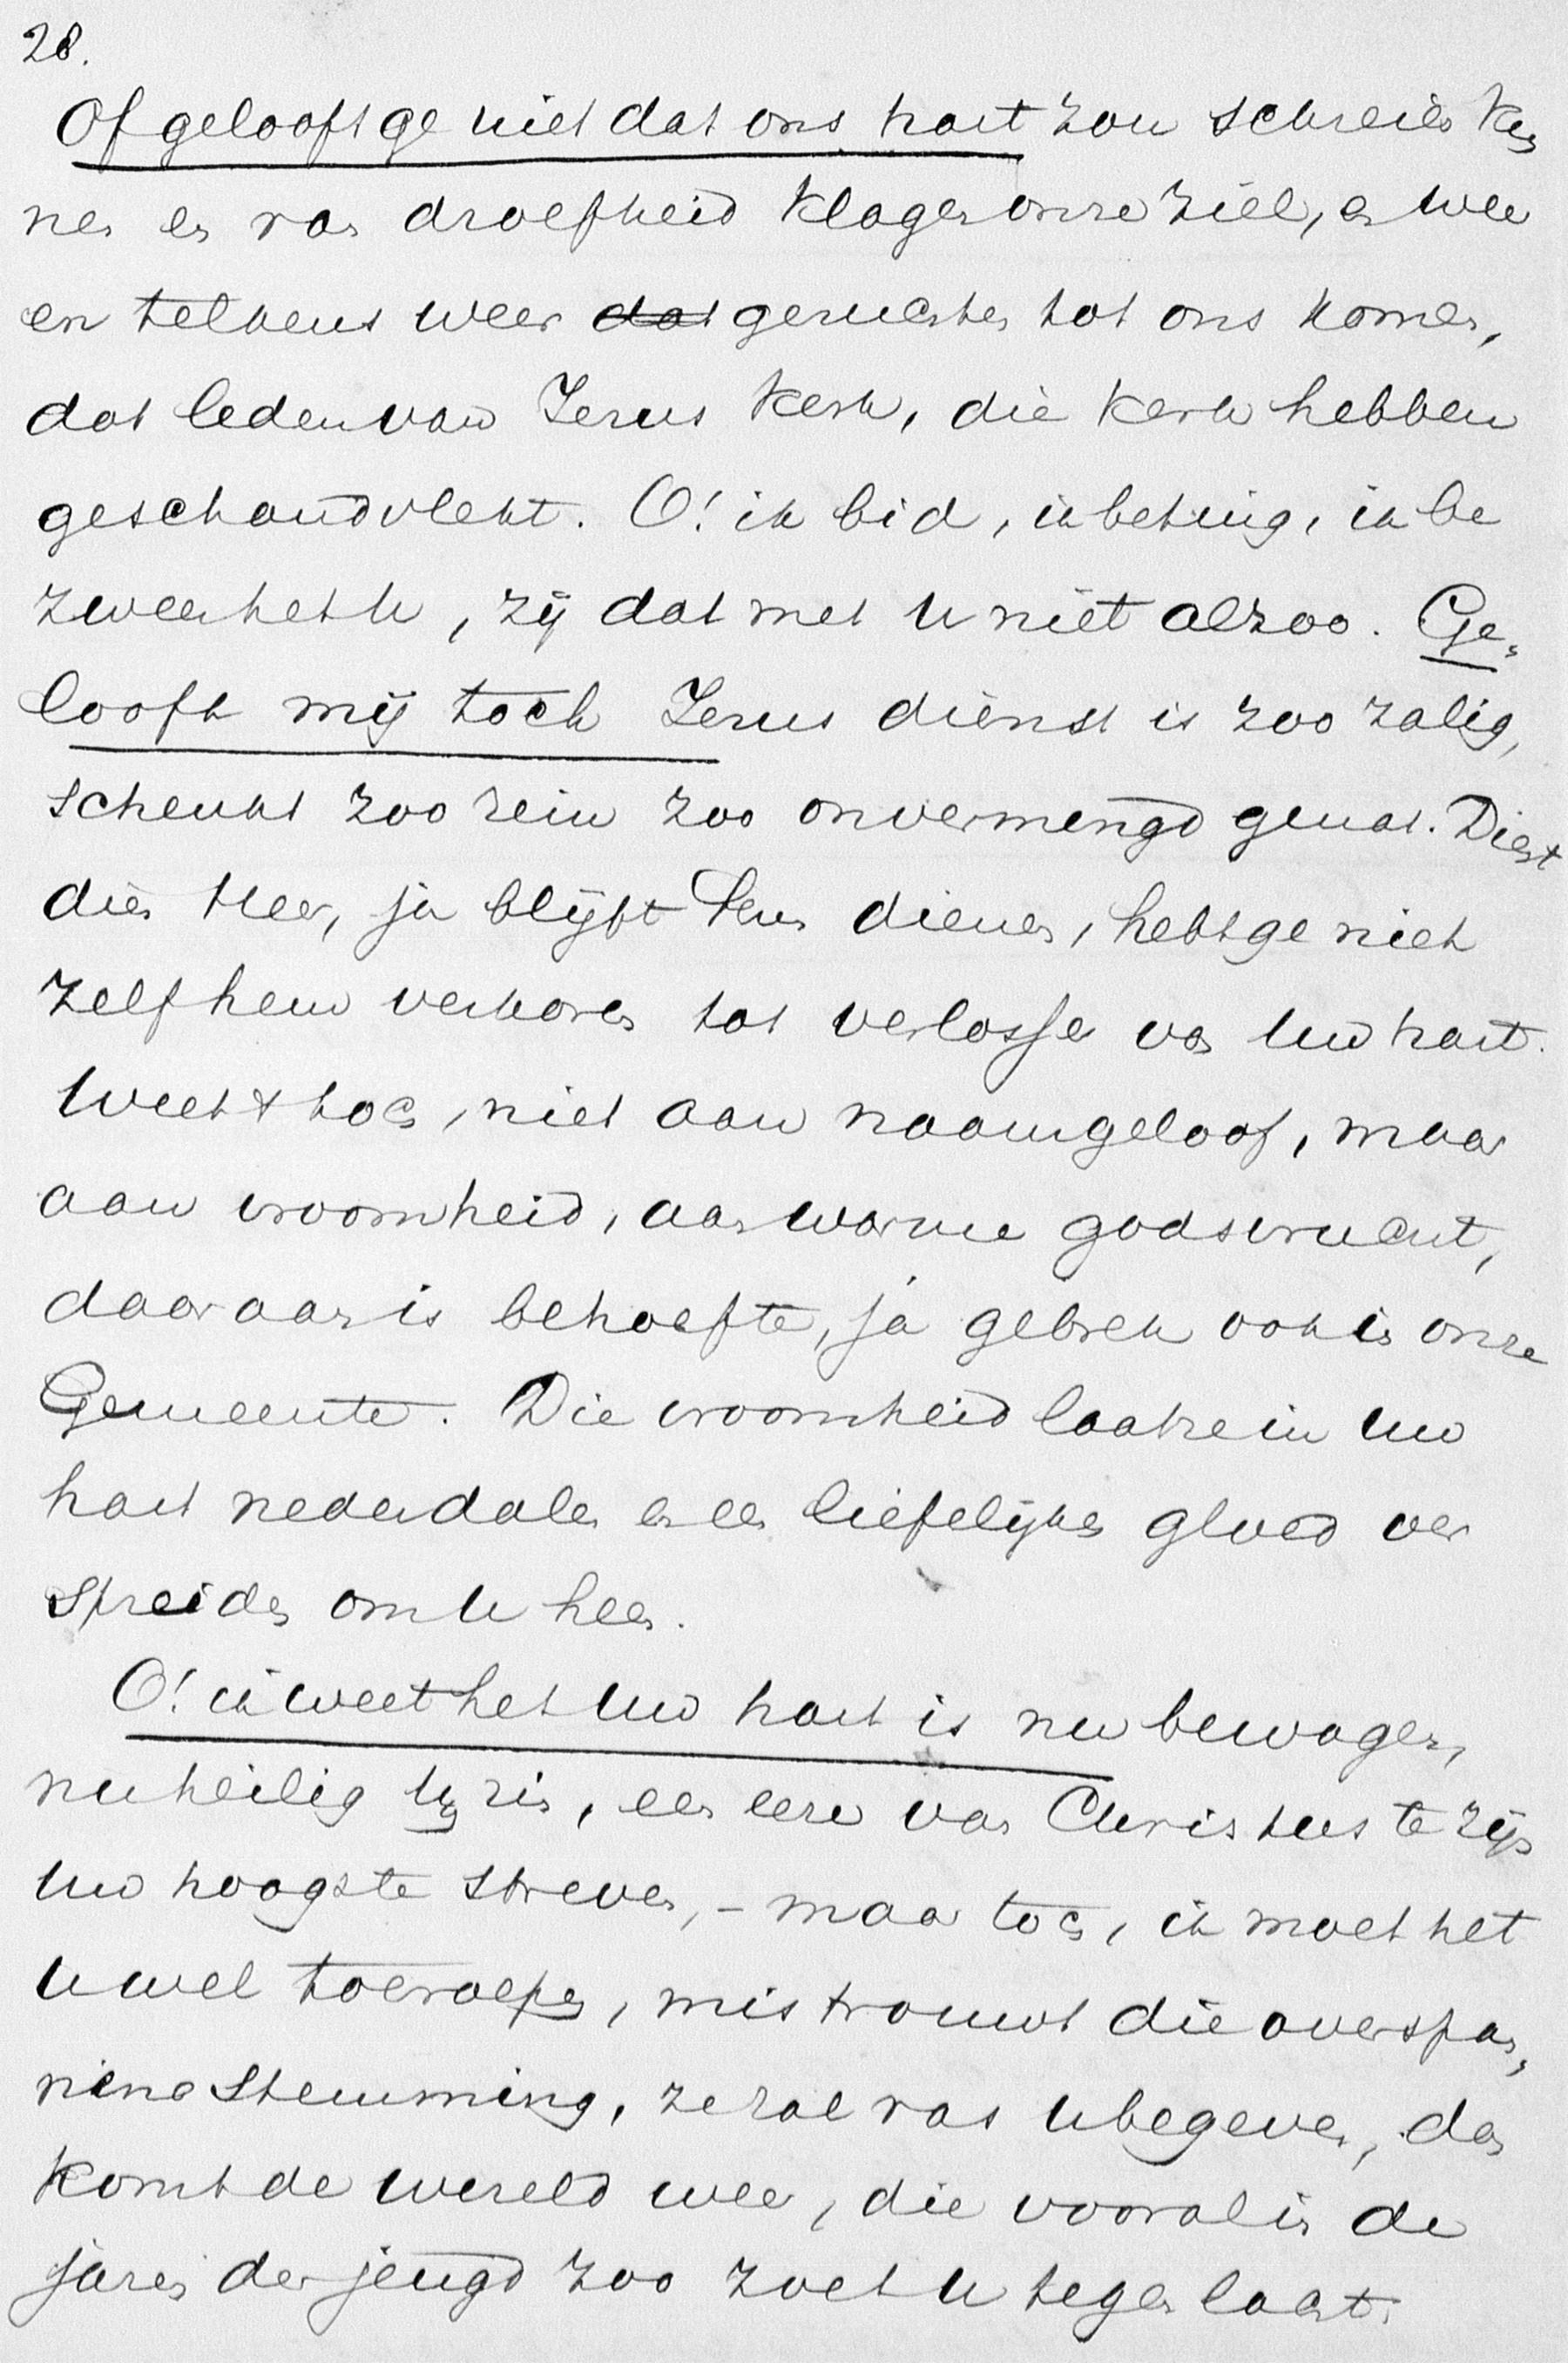 28.
Of gelooft ge niet dat ons hart zou schreien kun
nen en van droefheid klagen onze ziel, en weer
en telkens weer dat geruchten tot ons komen,
dat leden van Jezus kerk, die kerk hebben
geschandvlekt. O! ik bid, ik betuig, ik be
zweer het u, zij dat met u niet alzoo. Ge„
looft mij toch Jezus dienst is zoo zalig,
schenkt zoo rein zoo onvermengd genot. Dient
dien Heer, ja blijft Hem dienen, hebt ge niet
zelf hem verkoren tot verlosser van Uw hart.
Weet 't toch, niet aan naamgeloof, maar
aan vroomheid, aan warme godsvrucht,
daaraan is behoefte, ja gebrek ook in onze
Gemeente. Die vroomheid laat ze in uw
hart nederdalen en een liefelijken gloed ver
spreiden om U heen.
O! ik weet het Uw hart is nu bewogen,
nu heilig Uw zin, een eere van Christus te zijn
Uw hoogste streven, – maar toch, ik moet het
U wel toeroepen, mistrouwt die overspan„
nene stemming, ze zal ras U begeven, dan
komt de wereld weer, die vooral in de
jaren der jeugd zoo zoet U tegen lacht.